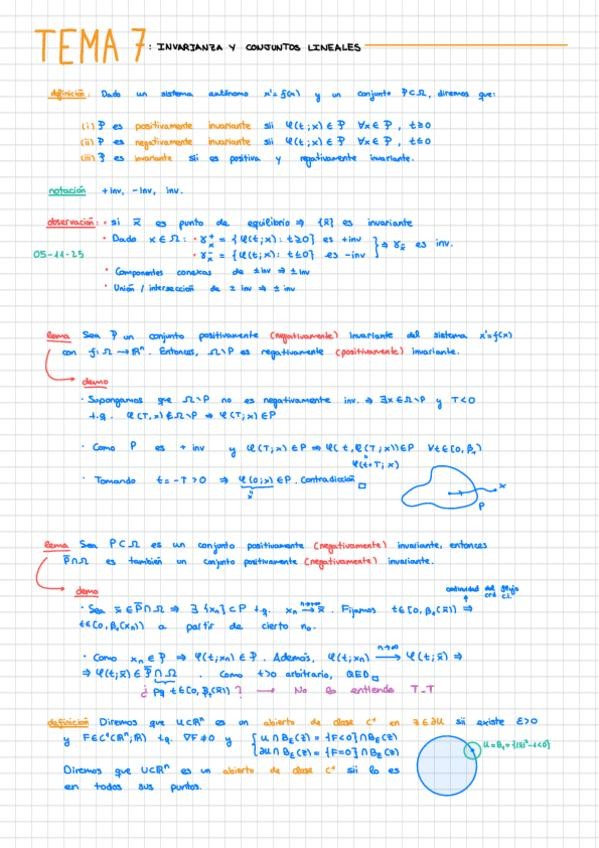 TEMA 7: INVARIANZA Y CONJUNTOS LINEALES
definición: Dado un sistema autónomo x'=f(x) y un conjunto P⊂Ω, diremos que:
(i) P es positivamente invariante sii φ(t;x)∈P ∀x∈P, t≥0
(ii) P es negativamente invariante sii φ(t;x)∈P ∀x∈P, t≤0
(iii) P es invariante sii es positiva y negativamente invariante.
notación +inv, -inv, inv.
observación: • si x̄ es punto de equilibrio ⇒ {x̄} es invariante
• Dado x∈Ω: • γₓ⁺ = {φ(t;x): t≥0} es +inv
05-11-25 • γₓ⁻ = {φ(t;x): t≤0} es -inv } ⇒ γₓ es inv.
• Componentes conexas de ±inv ⇒ ±inv
• Unión / intersección de ±inv ⇒ ±inv
lema Sea P un conjunto positivamente (negativamente) invariante del sistema x'=f(x)
con f: Ω → ℝⁿ. Entonces, Ω\P es negativamente (positivamente) invariante.
demo
• Supongamos que Ω\P no es negativamente inv. ⇒ ∃x∈Ω\P y T<0
t.q. φ(T,x)∉Ω\P ⇒ φ(T;x)∈P
• Como P es + inv y φ(T;x)∈P ⇒ φ(t,φ(T;x))∈P ∀t∈[0,β)
φ(t+T;x)
• Tomando t=-T>0 ⇒ φ(0;x)∈P. Contradicción □
x
x
P
lema Sea P⊂Ω es un conjunto positivamente (negativamente) invariante, entonces
P̄∩Ω es también un conjunto positivamente (negativamente) invariante.
demo
continuidad del flujo
• Sea x̄∈P̄∩Ω ⇒ ∃{xₙ}⊂P t.q. xₙ → x̄. Fijamos t∈[0,β(x̄)) ⇒
t∈[0,β(xₙ)) a partir de cierto n₀.
• Como xₙ∈P ⇒ φ(t;xₙ)∈P. Además, φ(t;xₙ) → φ(t;x̄) ⇒
⇒ φ(t;x̄)∈P̄∩Ω. Como t>0 arbitrario, QED□
¿ pq t∈[0,β(x̄))? → No lo entiendo T_T
definición Diremos que U⊂ℝⁿ es un abierto de clase C¹ en z∈∂U sii existe ε>0
y F∈C¹(ℝⁿ;ℝ) t.q. ∇F≠0 y { U∩Bε(z) = {F<0}∩Bε(z)
∂U∩Bε(z) = {F=0}∩Bε(z)
U=B₁={|x|²-1<0}
Diremos que U⊂ℝⁿ es un abierto de clase C¹ sii lo es
en todos sus puntos.